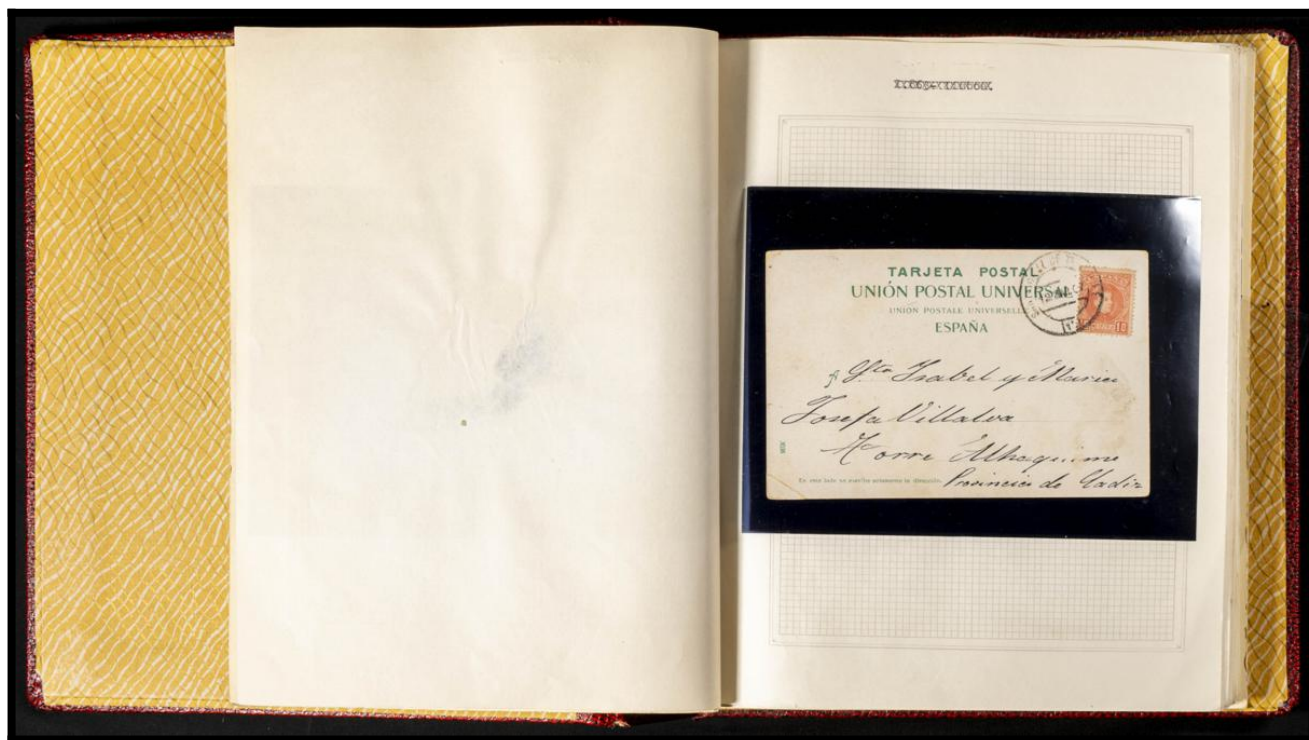 TARJETA POSTAL
UNIÓN POSTAL UNIVERSAL
UNION POSTALE UNIVERSELLE
ESPAÑA
Sta Isabel y Maria
Josefa Villalva
Torre Alhaquime
Provincia de Cadiz
En este lado se escribe solamente la dirección.